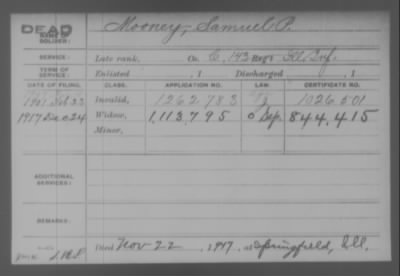 DEAD
NAME OF SOLDIER: Mooney, Samuel P.
SERVICE: Late rank, Co. C, 143 Reg't Ill. Inf.
TERM OF SERVICE: Enlisted , 1 Discharged , 1
DATE OF FILING. CLASS. APPLICATION NO. LAW. CERTIFICATE NO.
1901 Invalid, 1262.783 1026.501
1917 Dec 24 Widow, 1,113,795 844,415
Minor,
ADDITIONAL SERVICES:
REMARKS:
Died Nov 22, 1917, at Springfield, Ill.